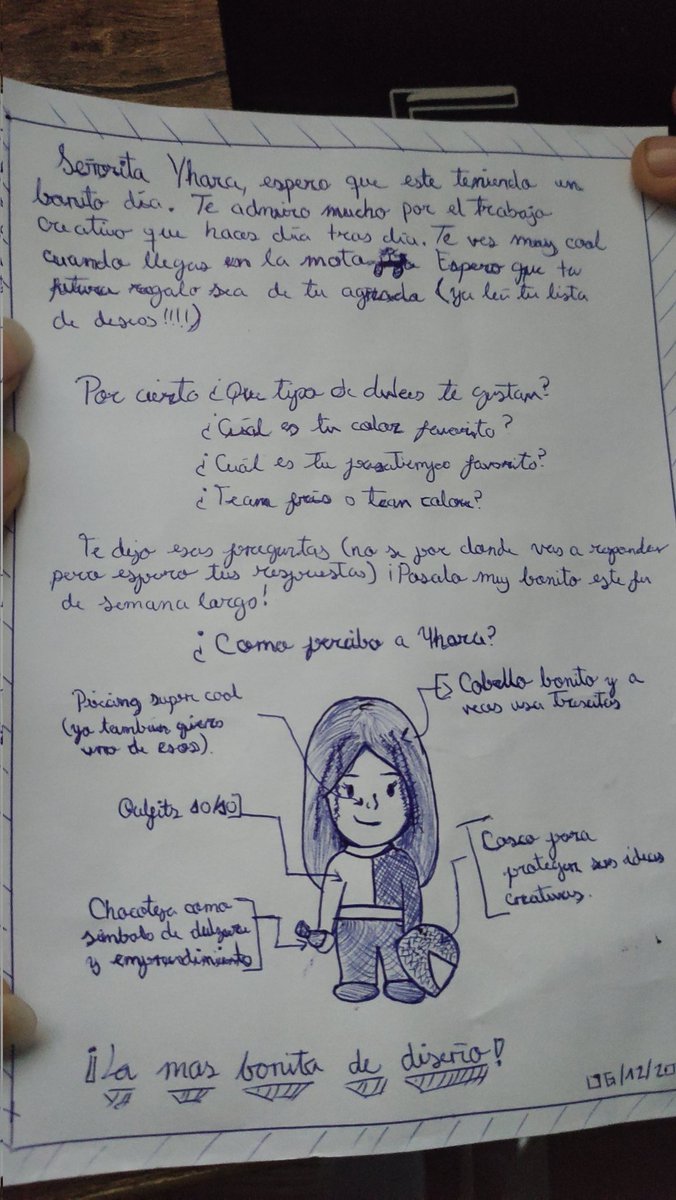 Señorita Yhara, espero que este teniendo un
bonito día. Te admiro mucho por el trabajo
creativo que haces día tras día. Te ves muy cool
cuando llegas en la moto Espero que tu
futuro regalo sea de tu agrado (ya leí tu lista
de deseos!!!!)
Por cierto ¿Que tipo de dulces te gustan?
¿Cuál es tu color favorito?
¿Cuál es tu pasatiempo favorito?
¿Team frío o team calor?
Te dejo esas preguntas (no se por donde vas a reponder
pero espero tus respuestas) ¡Pasala muy bonito este fin
de semana largo!
¿Como percibo a Yhara?
Pircing super cool
(yo también quiero
uno de esos).
Cabello bonito y a
veces usa trencitas
Outfits 10/10
Casco para
proteger sus ideas
creativas.
Chocoteja como
símbolo de dulzura
y emprendimiento
¡La mas bonita de diseño!
/12/20